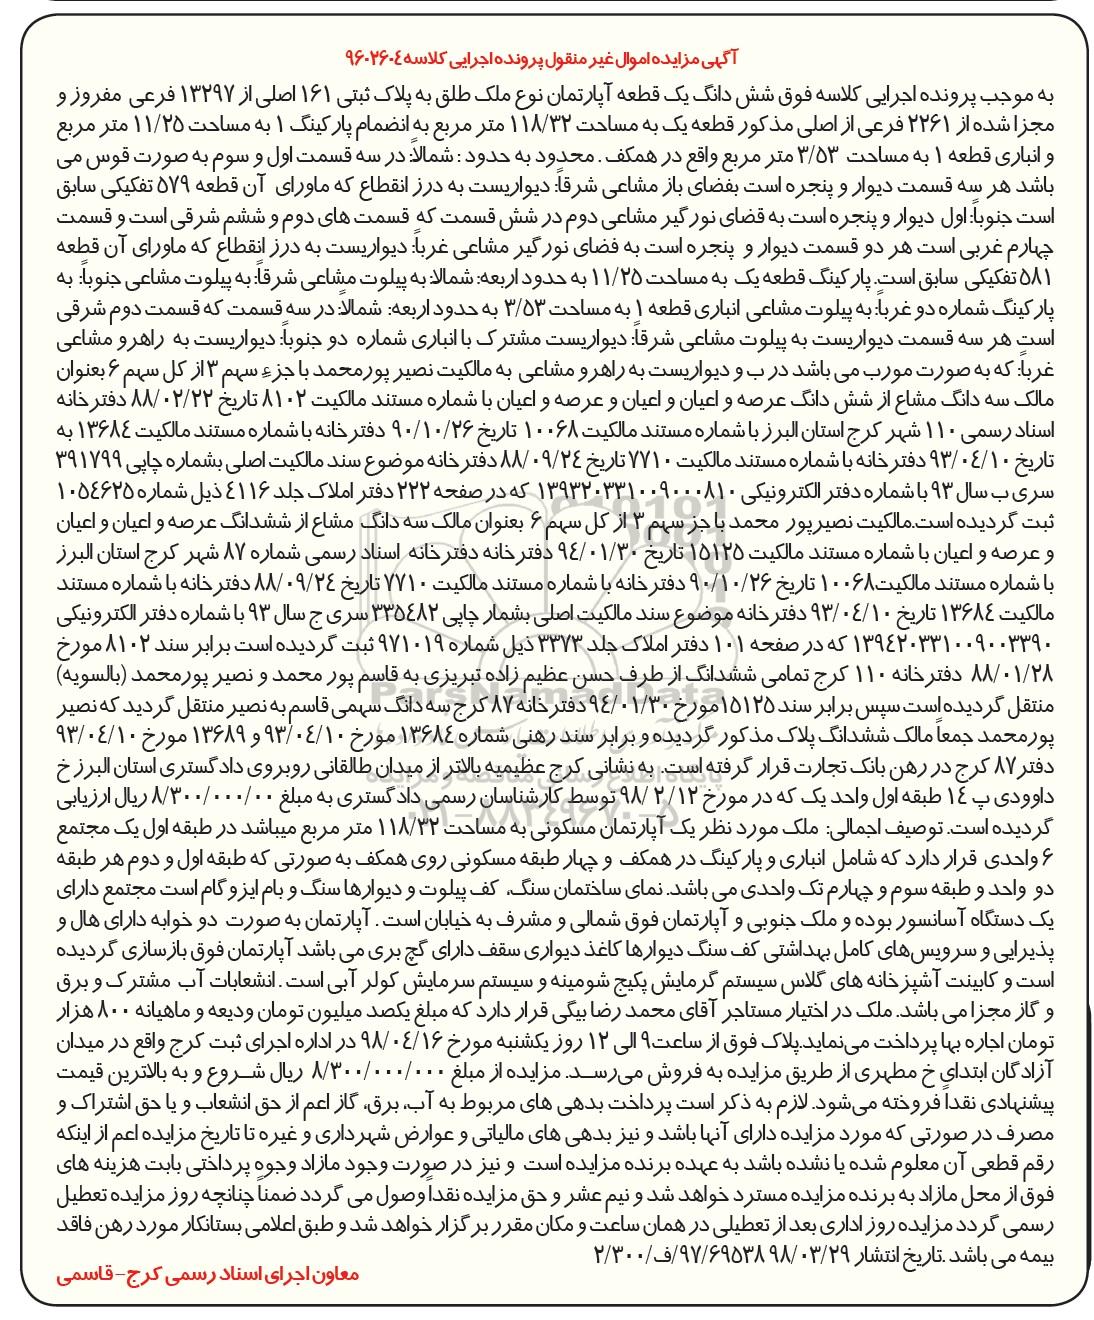 آگهی مزایده اموال غیر منقول پرونده اجرایی کلاسه ۹۶۰۲۶۰۴
به موجب پرونده اجرایی کلاسه فوق شش دانگ یک قطعه آپارتمان نوع ملک طلق به پلاک ثبتی ۱۶۱ اصلی از ۱۳۲۹۷ فرعی مفروز و
مجزا شده از ۲۲۶۱ فرعی از اصلی مذکور قطعه یک به مساحت ۱۱۸/۳۲ متر مربع به انضمام پارکینگ ۱ به مساحت ۱۱/۲۵ متر مربع
و انباری قطعه ۱ به مساحت ۳/۵۳ متر مربع واقع در همکف . محدود به حدود : شمالاً: در سه قسمت اول و سوم به صورت قوس می
باشد هر سه قسمت دیوار و پنجره است بفضای باز مشاعی شرقاً: دیواریست به درز انقطاع که ماورای آن قطعه ۵۷۹ تفکیکی سابق
است جنوباً: اول دیوار و پنجره است به قضای نورگیر مشاعی دوم در شش قسمت که قسمت های دوم و ششم شرقی است و قسمت
چهارم غربی است هر دو قسمت دیوار و پنجره است به فضای نورگیر مشاعی غرباً: دیواریست به درز انقطاع که ماورای آن قطعه
۵۸۱ تفکیکی سابق است. پارکینگ قطعه یک به مساحت ۱۱/۲۵ به حدود اربعه: شمالا: به پیلوت مشاعی شرقاً: به پیلوت مشاعی جنوباً: به
پارکینگ شماره دو غرباً: به پیلوت مشاعی انباری قطعه ۱ به مساحت ۳/۵۳ به حدود اربعه: شمالاً: در سه قسمت که قسمت دوم شرقی
است هر سه قسمت دیواریست به پیلوت مشاعی شرقاً: دیواریست مشترک با انباری شماره دو جنوباً: دیواریست به راهرو مشاعی
غرباً: که به صورت مورب می باشد درب و دیواریست به راهرو مشاعی به مالکیت نصیر پورمحمد با جزء سهم ۳ از کل سهم ۶ بعنوان
مالک سه دانگ مشاع از شش دانگ عرصه و اعیان و اعیان و عرصه و اعیان با شماره مستند مالکیت ۸۱۰۲ تاریخ ۸۸/۰۲/۲۲ دفترخانه
اسناد رسمی ۱۱۰ شهر کرج استان البرز با شماره مستند مالکیت ۱۰۰۶۸ تاریخ ۹۰/۱۰/۲۶ دفترخانه با شماره مستند مالکیت ۱۳۶۸۴ به
تاریخ ۹۳/۰۴/۱۰ دفترخانه با شماره مستند مالکیت ۷۷۱۰ تاریخ ۸۸/۰۹/۲۴ دفترخانه موضوع سند مالکیت اصلی بشماره چاپی ۳۹۱۷۹۹
سری ب سال ۹۳ با شماره دفتر الکترونیکی ۱۳۹۳۲۰۳۳۱۰۰۹۰۰۰۸۱۰ که در صفحه ۲۲۲ دفتر املاک جلد ۴۱۱۶ ذیل شماره ۱۰۵۴۶۲۵
ثبت گردیده است.مالکیت نصیرپور محمد با جز سهم ۳ از کل سهم ۶ بعنوان مالک سه دانگ مشاع از ششدانگ عرصه و اعیان و اعیان
و عرصه و اعیان با شماره مستند مالکیت ۱۵۱۲۵ تاریخ ۹۴/۰۱/۳۰ دفترخانه دفترخانه اسناد رسمی شماره ۸۷ شهر کرج استان البرز
با شماره مستند مالکیت۱۰۰۶۸ تاریخ ۹۰/۱۰/۲۶ دفترخانه با شماره مستند مالکیت ۷۷۱۰ تاریخ ۸۸/۰۹/۲۴ دفترخانه با شماره مستند
مالکیت ۱۳۶۸۴ تاریخ ۹۳/۰۴/۱۰ دفترخانه موضوع سند مالکیت اصلی بشمار چاپی ۳۳۵۴۸۲ سری ج سال ۹۳ با شماره دفتر الکترونیکی
۱۳۹۴۲۰۳۳۱۰۰۹۰۰۳۳۹۰ که در صفحه ۱۰۱ دفتر املاک جلد ۳۳۷۳ ذیل شماره ۹۷۱۰۱۹ ثبت گردیده است برابر سند ۸۱۰۲ مورخ
۸۸/۰۱/۲۸ دفترخانه ۱۱۰ کرج تمامی ششدانگ از طرف حسن عظیم زاده تبریزی به قاسم پور محمد و نصیر پورمحمد (بالسویه)
منتقل گردیده است سپس برابر سند ۱۵۱۲۵مورخ ۹۴/۰۱/۳۰ دفترخانه ۸۷ کرج سه دانگ سهمی قاسم به نصیر منتقل گردید که نصیر
پورمحمد جمعاً مالک ششدانگ پلاک مذکور گردیده و برابر سند رهنی شماره ۱۳۶۸۴مورخ ۹۳/۰۴/۱۰ و ۱۳۶۸۹ مورخ ۹۳/۰۴/۱۰
دفتر۸۷ کرج در رهن بانک تجارت قرار گرفته است. به نشانی کرج عظیمیه بالاتر از میدان طالقانی روبروی دادگستری استان البرز خ
داوودی پ ۱۴ طبقه اول واحد یک که در مورخ ۹۸/ ۲/۱۲ توسط کارشناسان رسمی دادگستری به مبلغ ۸/۳۰۰/۰۰۰/۰۰ ریال ارزیابی
گردیده است. توصیف اجمالی: ملک مورد نظر یک آپارتمان مسکونی به مساحت ۱۱۸/۳۲ متر مربع میباشد در طبقه اول یک مجتمع
۶ واحدی قرار دارد که شامل انباری و پارکینگ در همکف و چهار طبقه مسکونی روی همکف به صورتی که طبقه اول و دوم هر طبقه
دو واحد و طبقه سوم و چهارم تک واحدی می باشد. نمای ساختمان سنگ، کف پیلوت و دیوارها سنگ و بام ایزوگام است مجتمع دارای
یک دستگاه آسانسور بوده و ملک جنوبی و آپارتمان فوق شمالی و مشرف به خیابان است . آپارتمان به صورت دو خوابه دارای هال و
پذیرایی و سرویس‌های کامل بهداشتی کف سنگ دیوارها کاغذ دیواری سقف دارای گچ بری می باشد آپارتمان فوق بازسازی گردیده
است و کابینت آشپزخانه های گلاس سیستم گرمایش پکیج شومینه و سیستم سرمایش کولر آبی است . انشعابات آب مشترک و برق
و گاز مجزا می باشد. ملک در اختیار مستاجر آقای محمد رضا بیگی قرار دارد که مبلغ یکصد میلیون تومان ودیعه و ماهیانه ۸۰۰ هزار
تومان اجاره بها پرداخت می‌نماید.پلاک فوق از ساعت۹ الی ۱۲ روز یکشنبه مورخ ۹۸/۰۴/۱۶ در اداره اجرای ثبت کرج واقع در میدان
آزادگان ابتدای خ مطهری از طریق مزایده به فروش می‌رسد. مزایده از مبلغ ۸/۳۰۰/۰۰۰/۰۰۰ ریال شروع و به بالاترین قیمت
پیشنهادی نقداً فروخته می‌شود. لازم به ذکر است پرداخت بدهی های مربوط به آب، برق، گاز اعم از حق انشعاب و یا حق اشتراک و
مصرف در صورتی که مورد مزایده دارای آنها باشد و نیز بدهی های مالیاتی و عوارض شهرداری و غیره تا تاریخ مزایده اعم از اینکه
رقم قطعی آن معلوم شده یا نشده باشد به عهده برنده مزایده است و نیز در صورت وجود مازاد وجوه پرداختی بابت هزینه های
فوق از محل مازاد به برنده مزایده مسترد خواهد شد و نیم عشر و حق مزایده نقداً وصول می گردد ضمناً چنانچه روز مزایده تعطیل
رسمی گردد مزایده روز اداری بعد از تعطیلی در همان ساعت و مکان مقرر برگزار خواهد شد و طبق اعلامی بستانکار مورد رهن فاقد
بیمه می باشد .تاریخ انتشار ۹۸/۰۳/۲۹ ۹۷/۶۹۵۳۸/ف/۲/۳۰۰
معاون اجرای اسناد رسمی کرج- قاسمی
ParsNamadData
پایگاه اطلاع رسانی مناقصه و مزایده
۰۲۱-۸۸۳۴۹۶۷۰-۵